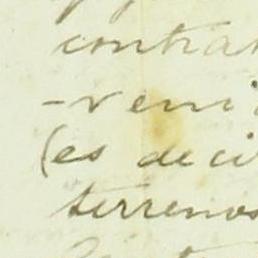 contra
-veni
(es deci
terrenos